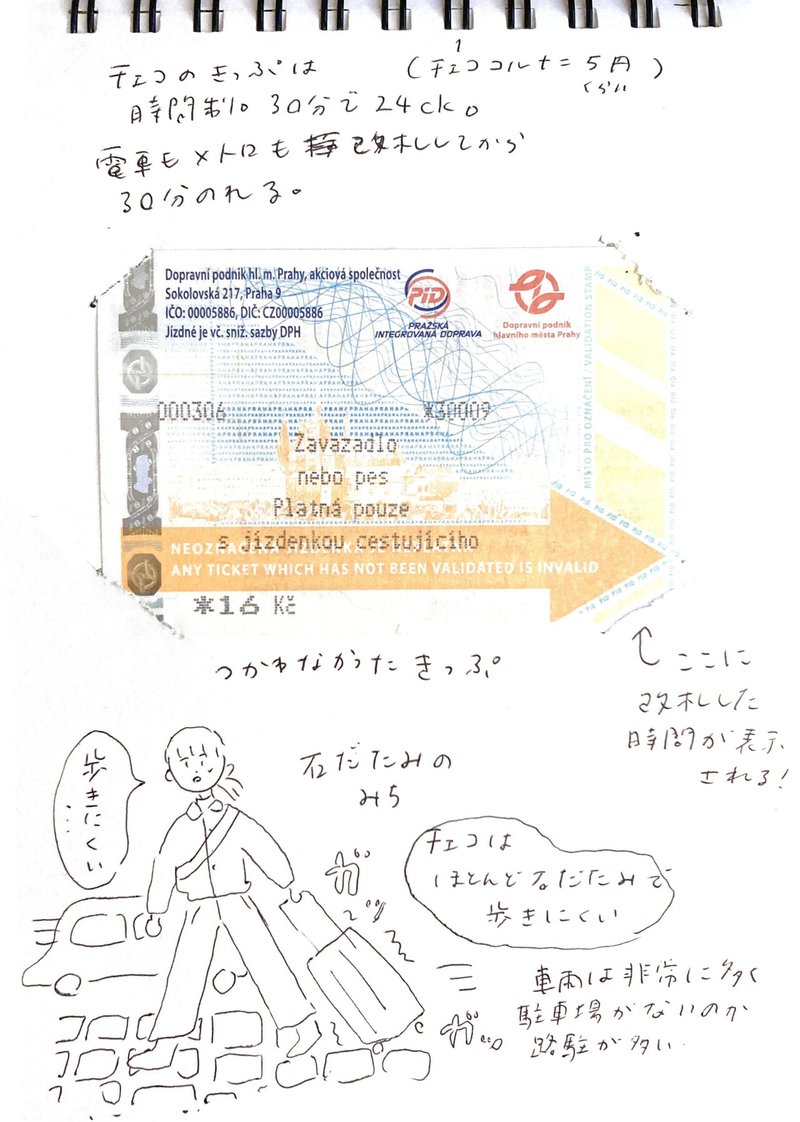 チェコのきっぷは
(1チェココルナ=5円くらい)
時間制。30分で24ck。
電車もメトロも改札してから
30分のれる。
Dopravní podnik hl. m. Prahy, akciová společnost
Sokolovská 217, Praha 9
IČO: 00005886, DIČ: CZ00005886
Jízdné je vč. sníž. sazby DPH
PID
PRAŽSKÁ
INTEGROVANÁ DOPRAVA
Dopravní podnik
hlavního města Prahy
MÍSTO PRO OZNAČENÍ / VALIDATION STAMP
000306
*30009
Zavazadlo
nebo pes
Platná pouze
s jízdenkou cestujícího
NEOZNAČENÁ JÍZDENKA JE NEPLATNÁ
ANY TICKET WHICH HAS NOT BEEN VALIDATED IS INVALID
*16 Kč
つかわなかったきっぷ
ここに
改札した
時間が表示
される!
歩きにくい…
石だたみの
みち
チェコは
ほとんど石だたみで
歩きにくい
ガガッ
ガッ
車両は非常に多く
駐車場がないのか
路駐が多い